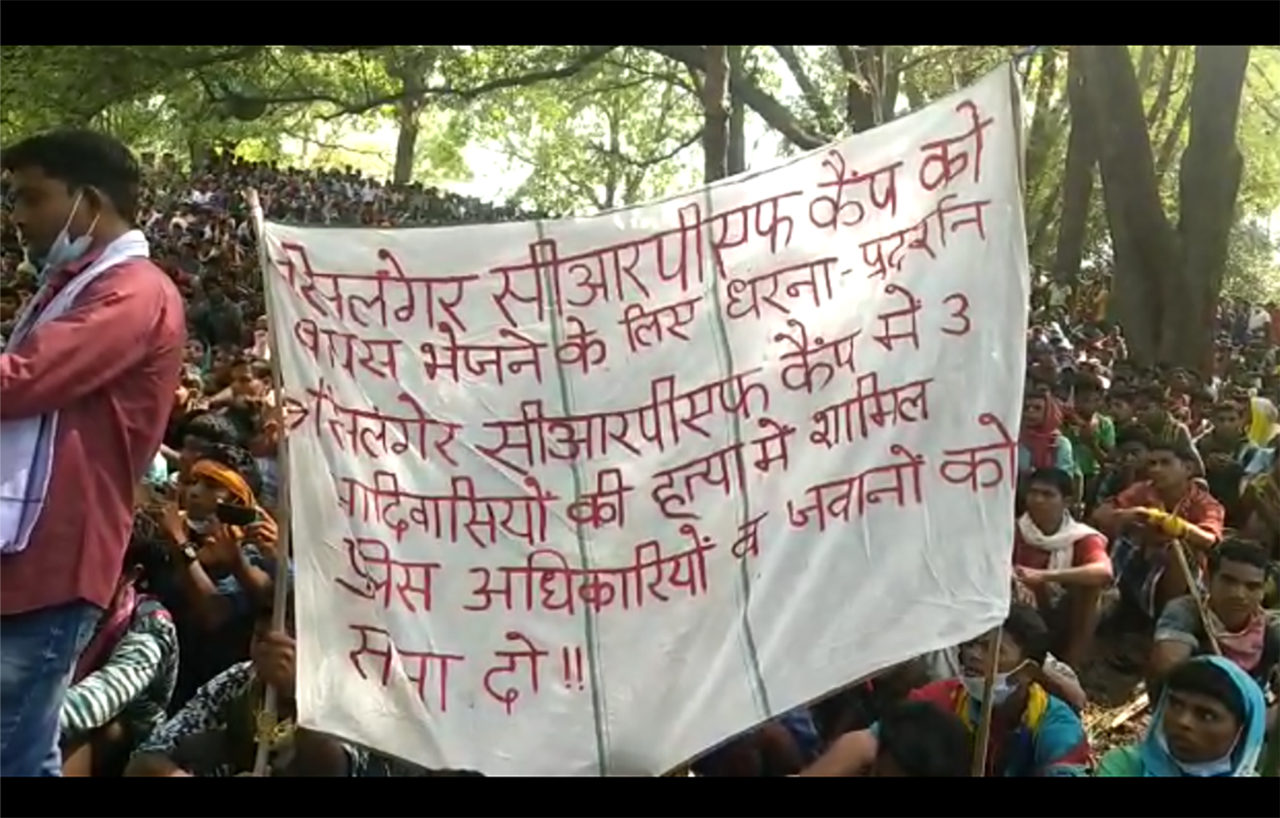 → सिलंगेर सीआरपीएफ कैंप को
वापस भेजने के लिए धरना-प्रदर्शन
→ सिलंगेर सीआरपीएफ कैंप में 3
आदिवासियों की हत्या में शामिल
पुलिस अधिकारियों व जवानों को
सजा दो!!